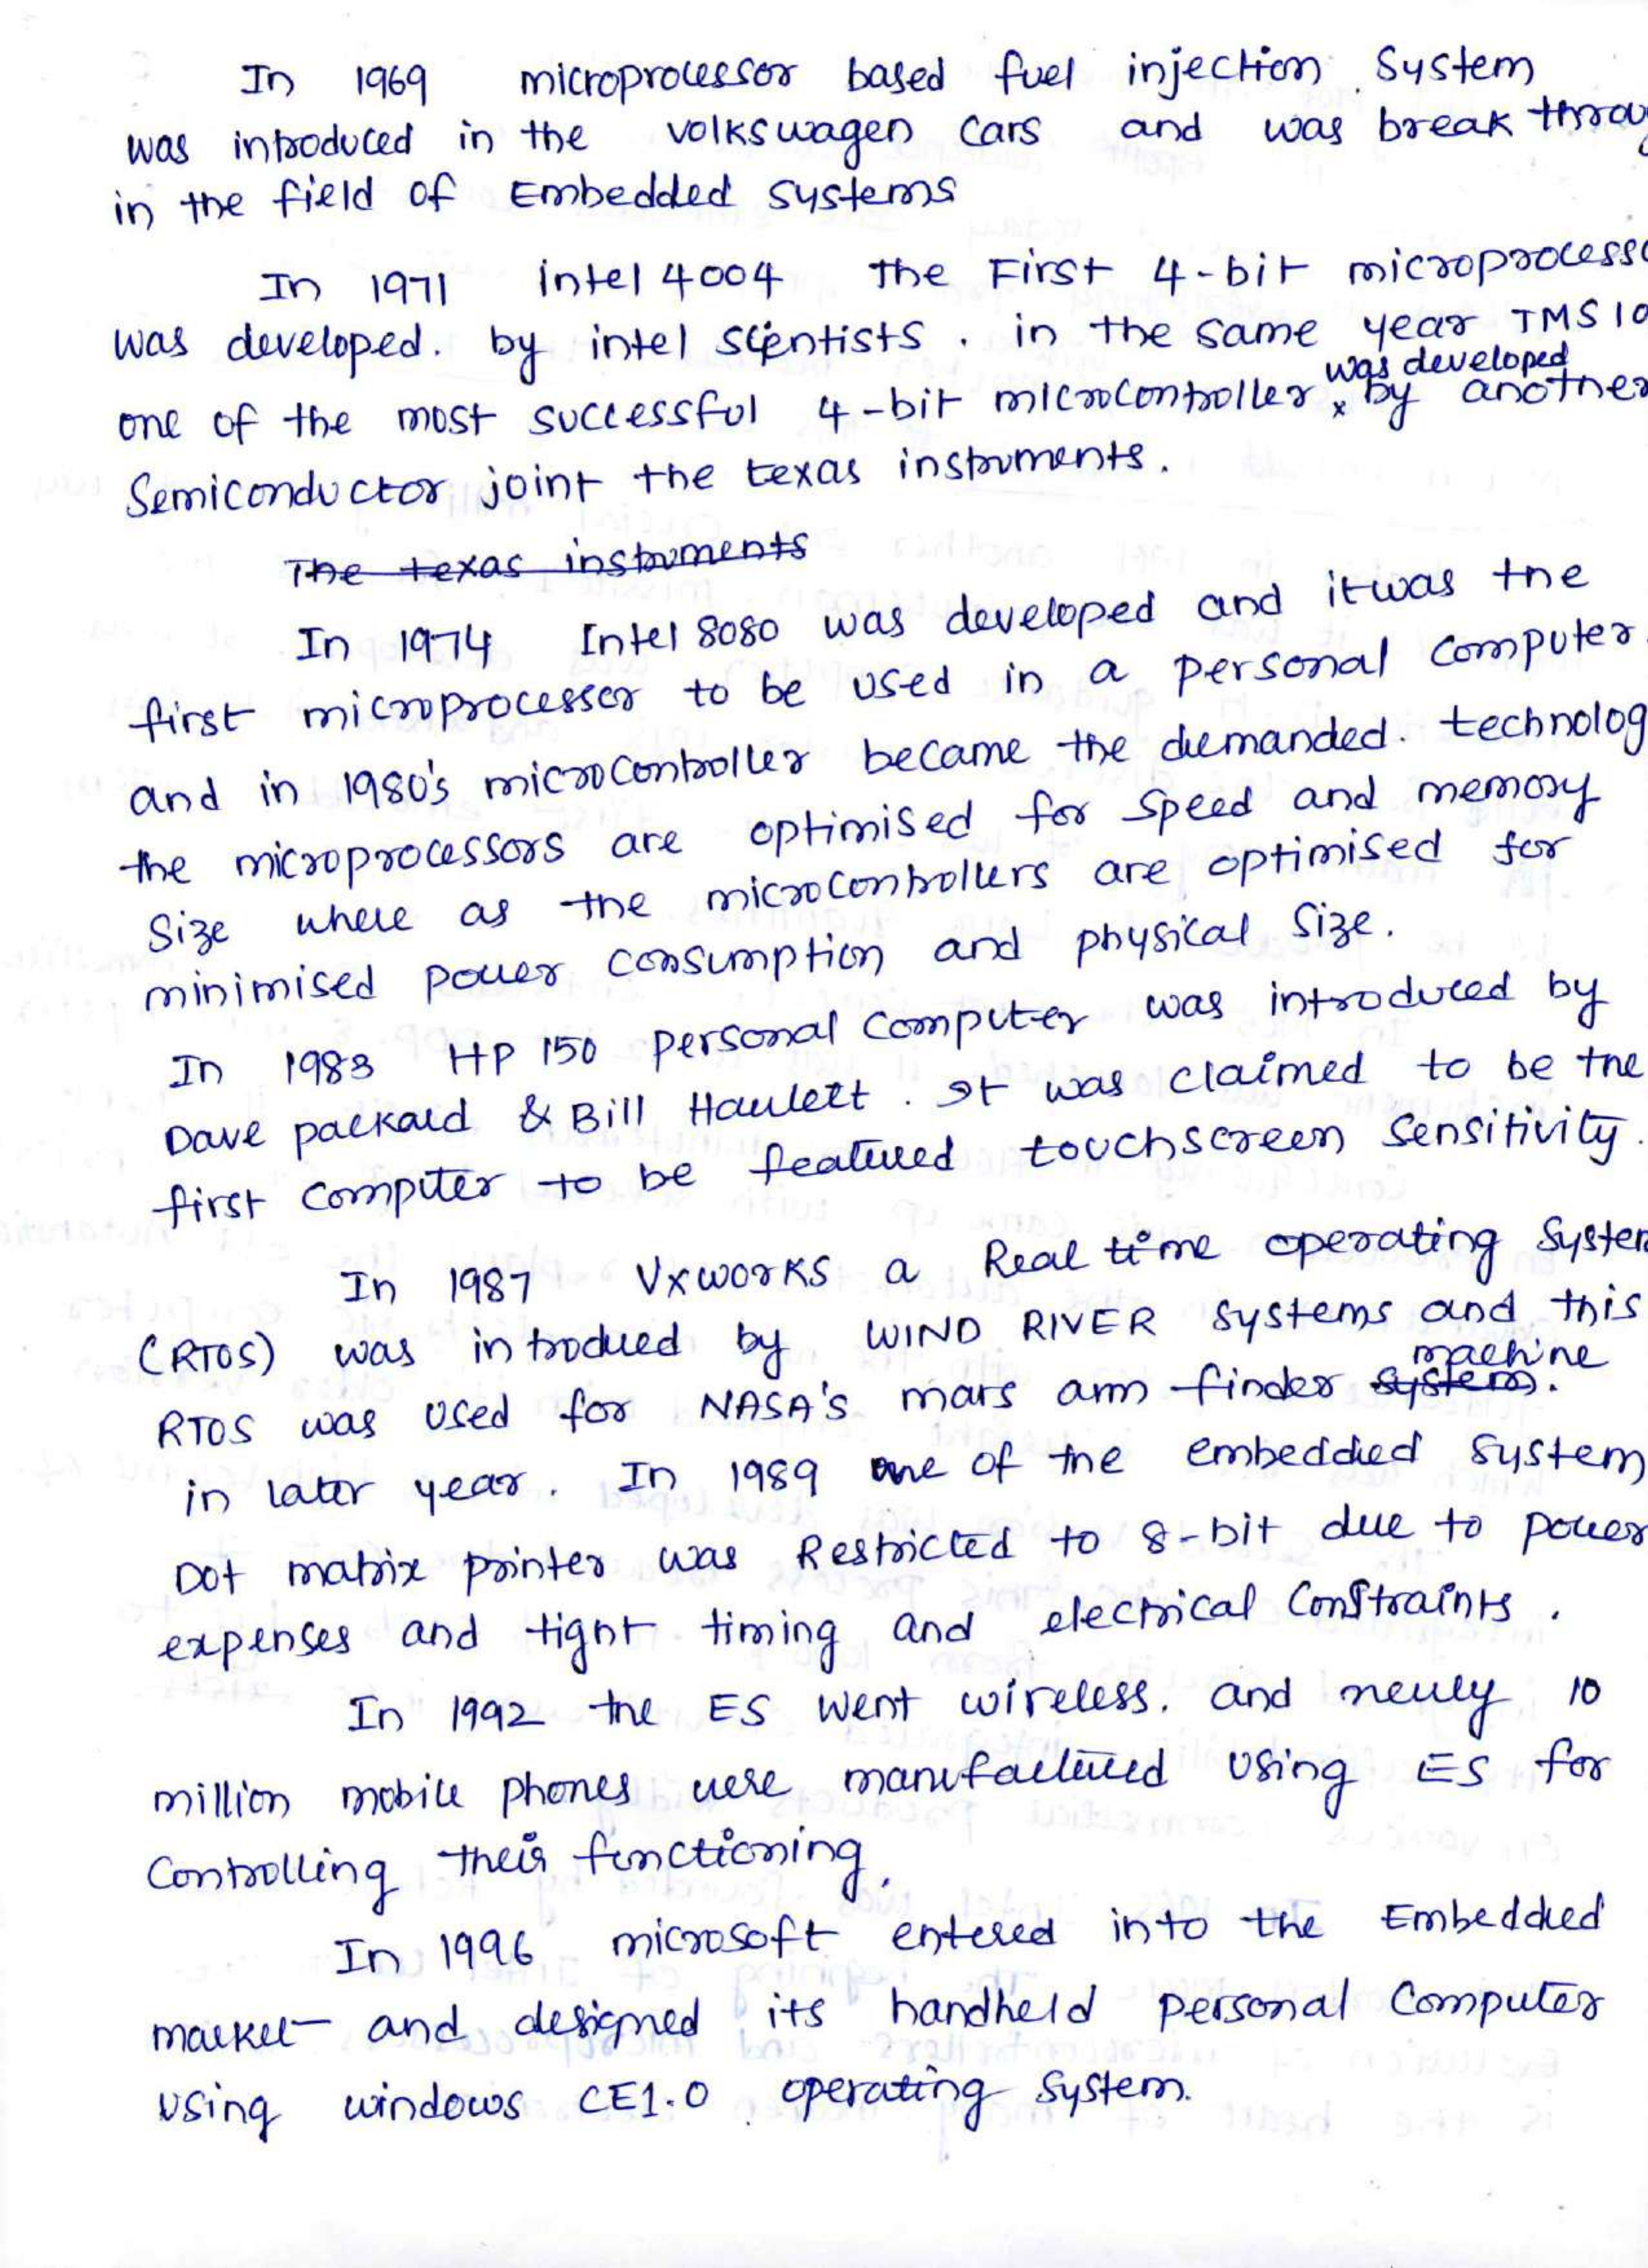 In 1969 microprocessor based fuel injection System
was introduced in the volkswagen cars and was break throu
in the field of Embedded systems
In 1971 intel 4004 the First 4-bit microprocesso
was developed. by intel scientists. in the same year TMS 10
was developed
one of the most successful 4-bit microcontroller x by another
Semiconductor joint the texas instruments.
The texas instruments
In 1974 Intel 8080 was developed and it was the
first microprocessor to be used in a personal computer.
and in 1980's microcontroller became the demanded. technolog
the microprocessors are optimised for speed and memory
Size where as the microcontrollers are optimised for
minimised power consumption and physical Size.
In 1983 HP 150 personal computer was introduced by
Dave packard & Bill Haulett. It was claimed to be the
first computer to be featured touchscreen sensitivity.
In 1987 Vxworks a Real time operating System
(RTOS) was introdued by WIND RIVER systems and this
machine
RTOS was used for NASA's mars arm finder system.
in later year. In 1989 one of the embedded system
Dot matrix printer was Restricted to 8-bit due to power
expenses and tight timing and electrical Constraints.
In 1992 the ES went wireless. and newly 10
million mobile phones were manufactured using ES for
Controlling their functioning.
In 1996 microsoft entered into the Embedded
market and designed its handheld personal Computer
using windows CE1.0 operating system.